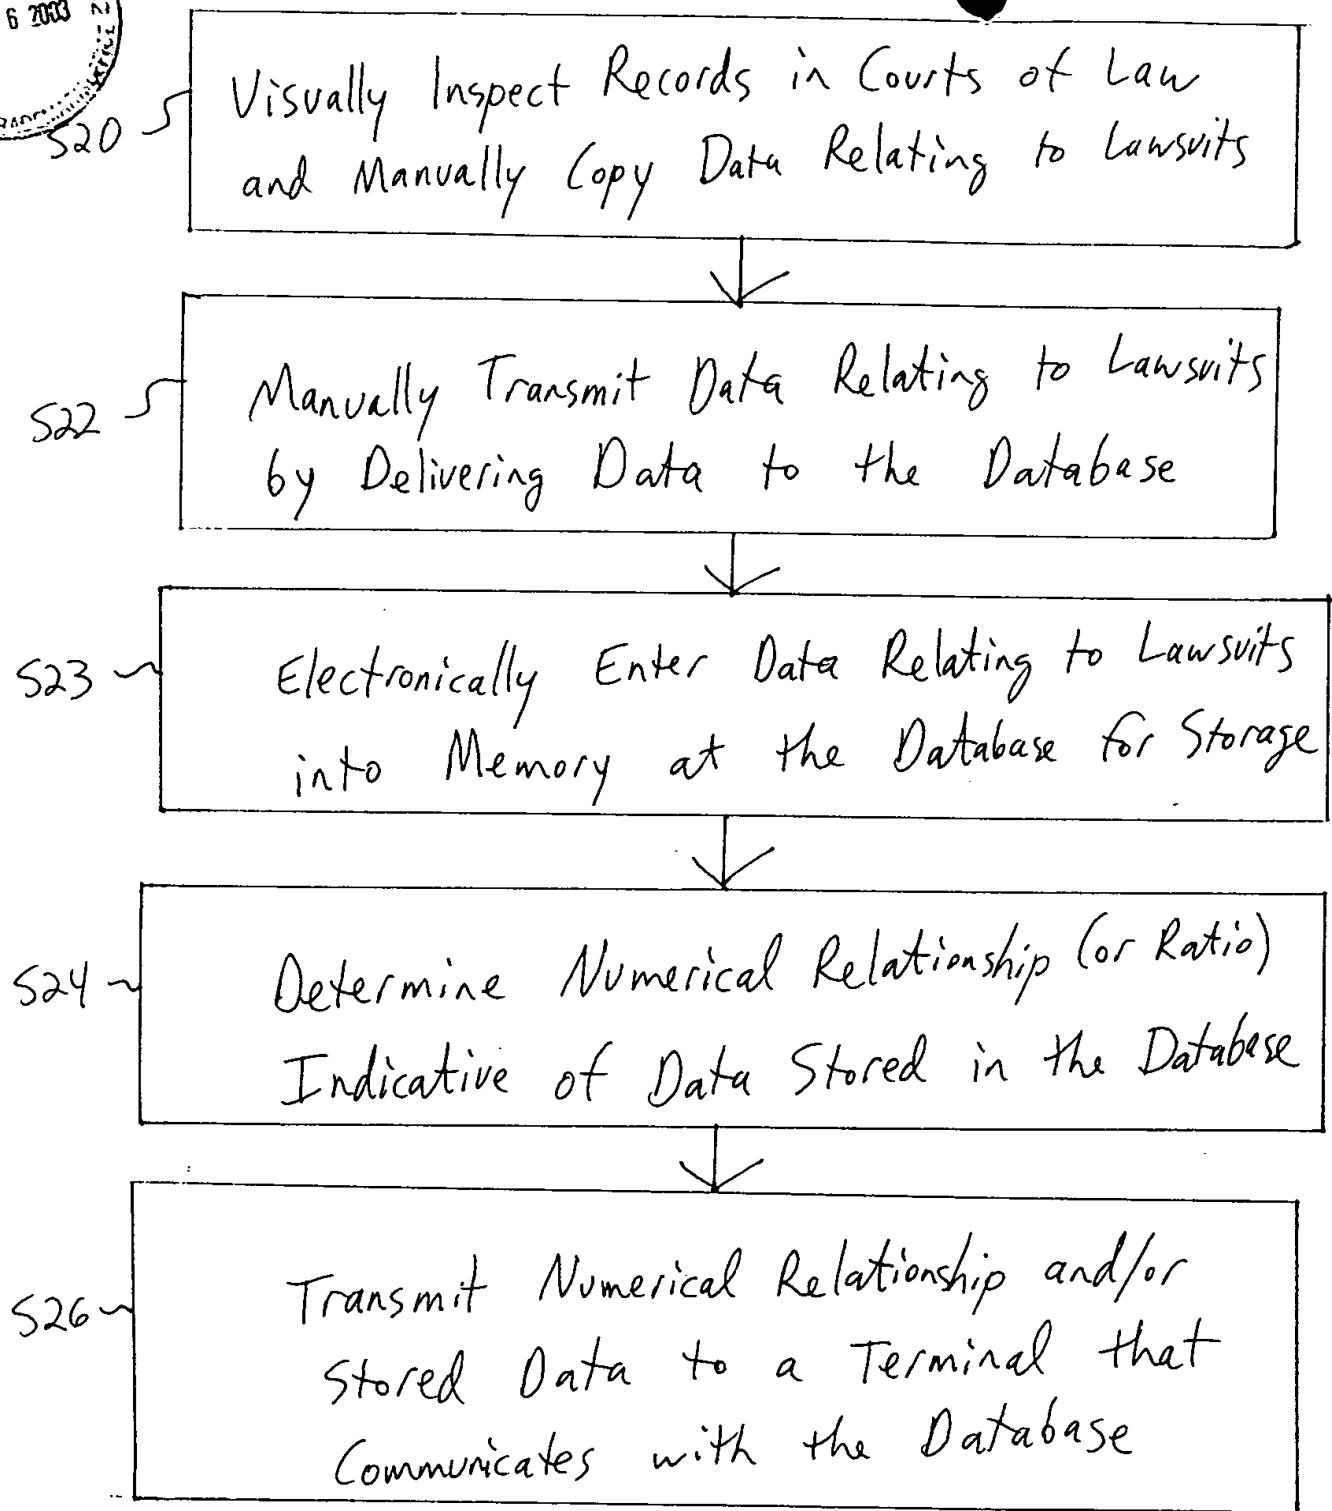 6 2003
S20
Visually Inspect Records in Courts of Law
and Manually Copy Data Relating to Lawsuits
S22
Manually Transmit Data Relating to Lawsuits
by Delivering Data to the Database
S23
Electronically Enter Data Relating to Lawsuits
into Memory at the Database for Storage
S24
Determine Numerical Relationship (or Ratio)
Indicative of Data Stored in the Database
S26
Transmit Numerical Relationship and/or
Stored Data to a Terminal that
Communicates with the Database